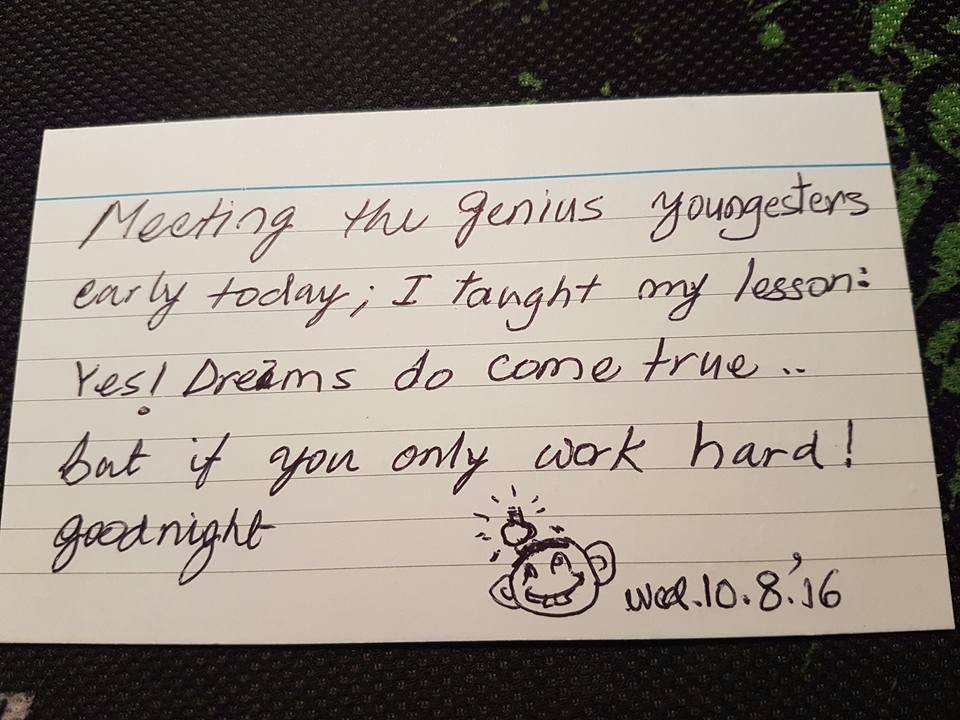 Meeting the genius youngesters
early today; I taught my lesson:
Yes! Dreams do come true ..
but if you only work hard!
goodnight
wed.10.8.'16